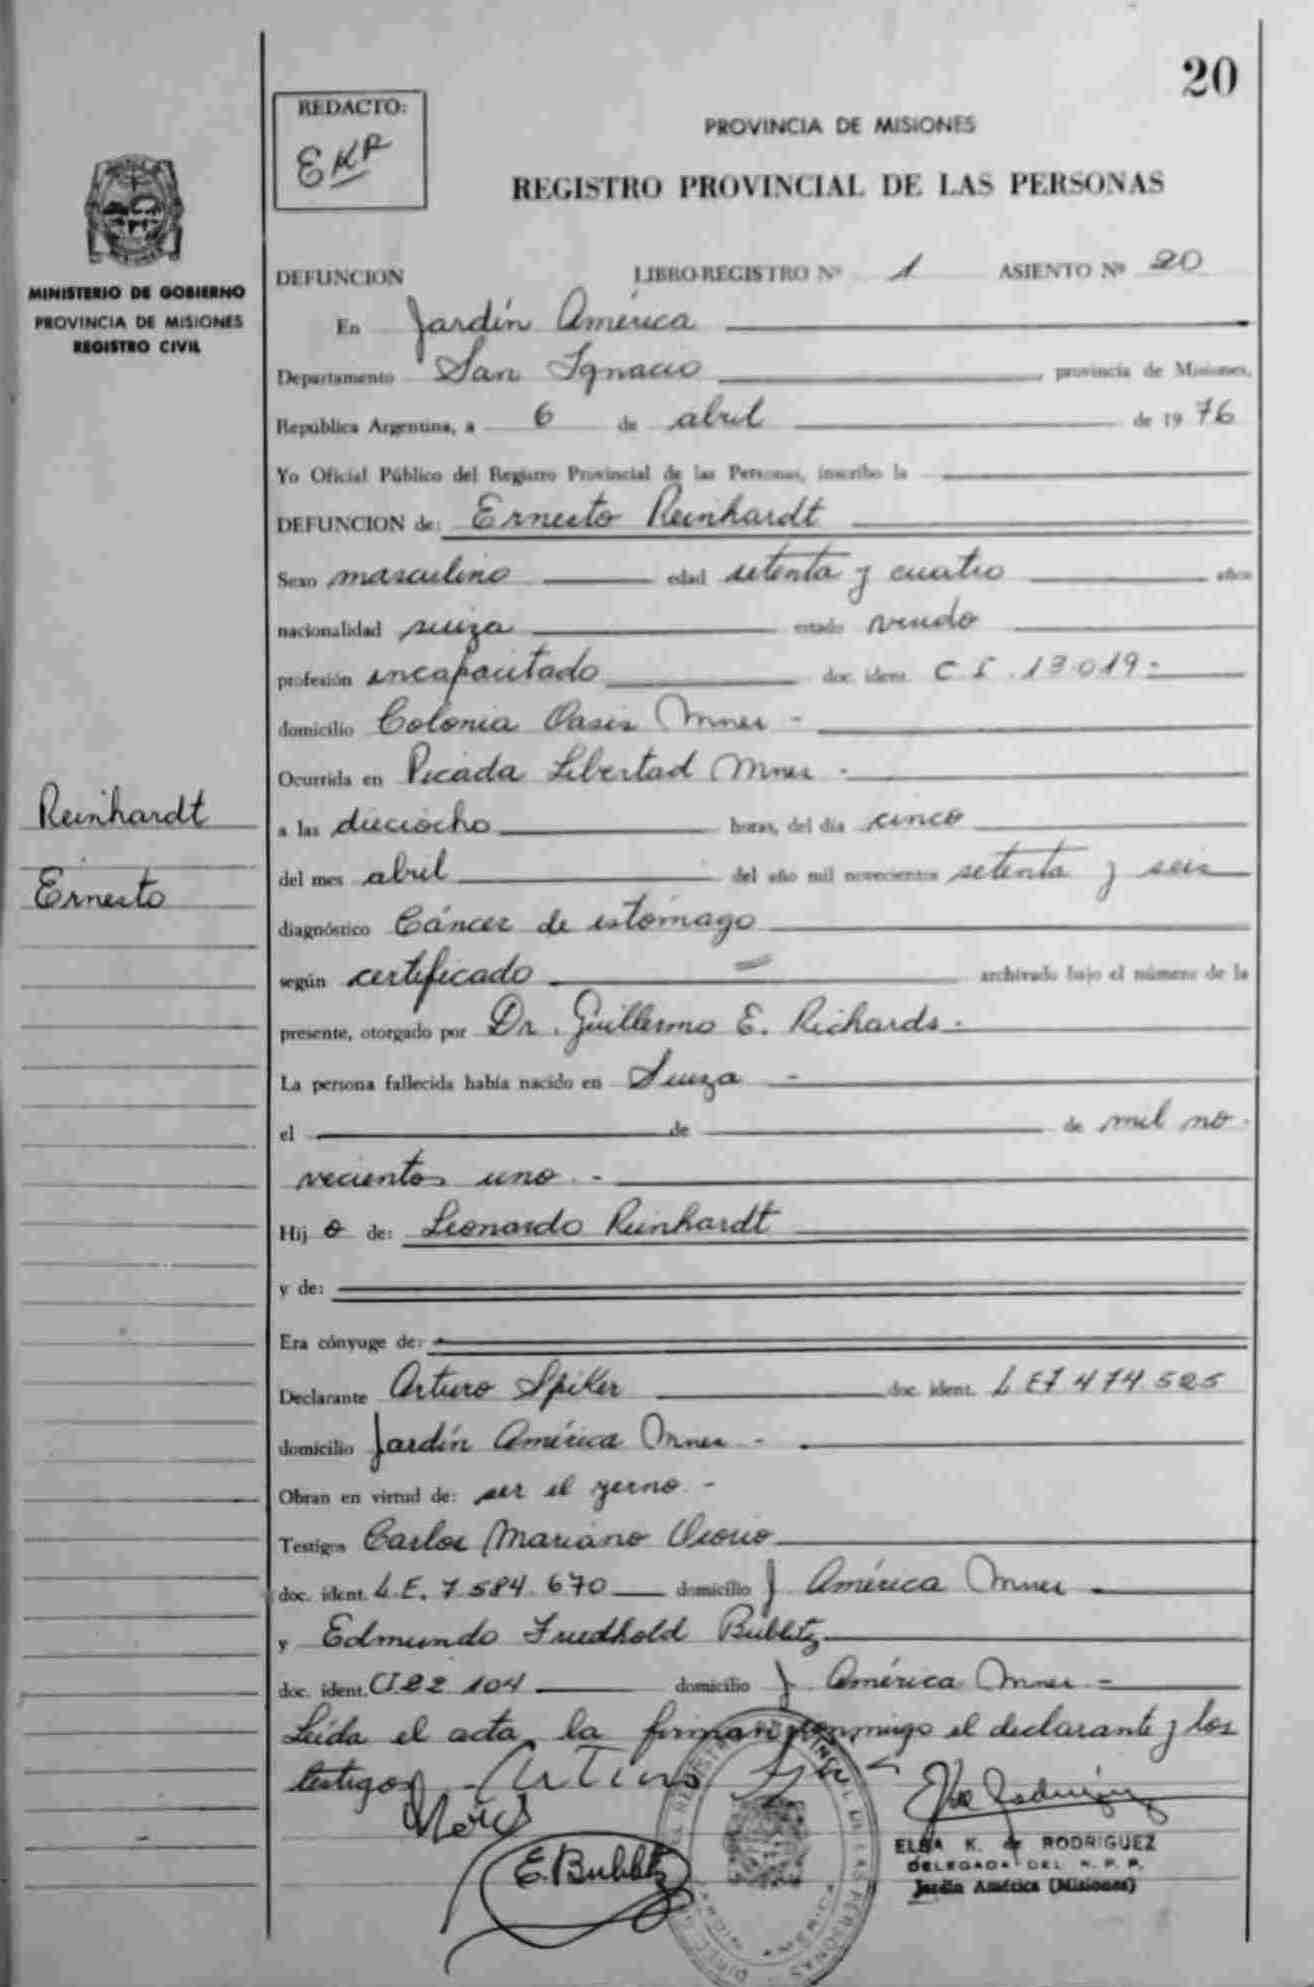 20
REDACTO:
EKR
PROVINCIA DE MISIONES
REGISTRO PROVINCIAL DE LAS PERSONAS
MINISTERIO DE GOBIERNO
PROVINCIA DE MISIONES
REGISTRO CIVIL
DEFUNCION LIBRO-REGISTRO Nº 1 ASIENTO Nº 20
En Jardín América
Departamento San Ignacio provincia de Misiones,
República Argentina, a 6 de abril de 1976
Yo Oficial Público del Registro Provincial de las Personas, inscribo la
DEFUNCION de: Ernesto Reinhardt
Sexo masculino edad setenta y cuatro años
nacionalidad suiza estado viudo
profesión incapacitado doc. ident. C I. 13.019.-
domicilio Colonia Oasis Mnes -
Ocurrida en Picada Libertad Mnes -
a las dieciocho horas, del día cinco
del mes abril del año mil novecientos setenta y seis
diagnóstico Cáncer de estómago
según certificado archivado bajo el número de la
presente, otorgado por Dr. Guillermo E. Richards.
La persona fallecida había nacido en Suiza -
el de de mil no-
vecientos uno.-
Hijo de: Leonardo Reinhardt
y de:
Era cónyuge de:
Declarante Arturo Spiker doc. ident. L E 7.474.525
domicilio Jardín América Mnes -
Obran en virtud de: ser el yerno.-
Testigos Carlos Mariano
doc. ident. L.E. 7.584.670 domicilio J. América Mnes
y Edmundo Friedhold Bublitz
doc. ident. CI.22.104 domicilio J. América Mnes -
Leída el acta, la firman conmigo el declarante y los
testigos.-
Arturo
E. Bublitz
ELBA K. de RODRIGUEZ
DELEGADA DEL R. P. P.
Jardín América (Misiones)
Reinhardt
Ernesto